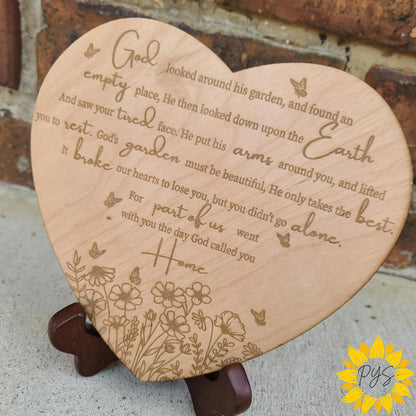 God looked around his garden, and found an
empty place, He then looked down upon the Earth
And saw your tired face. He put his arms around you, and lifted
you to rest. God's garden must be beautiful, He only takes the best.
It broke our hearts to lose you, but you didn't go alone.
For part of us went
with you the day God called you
Home
PYS